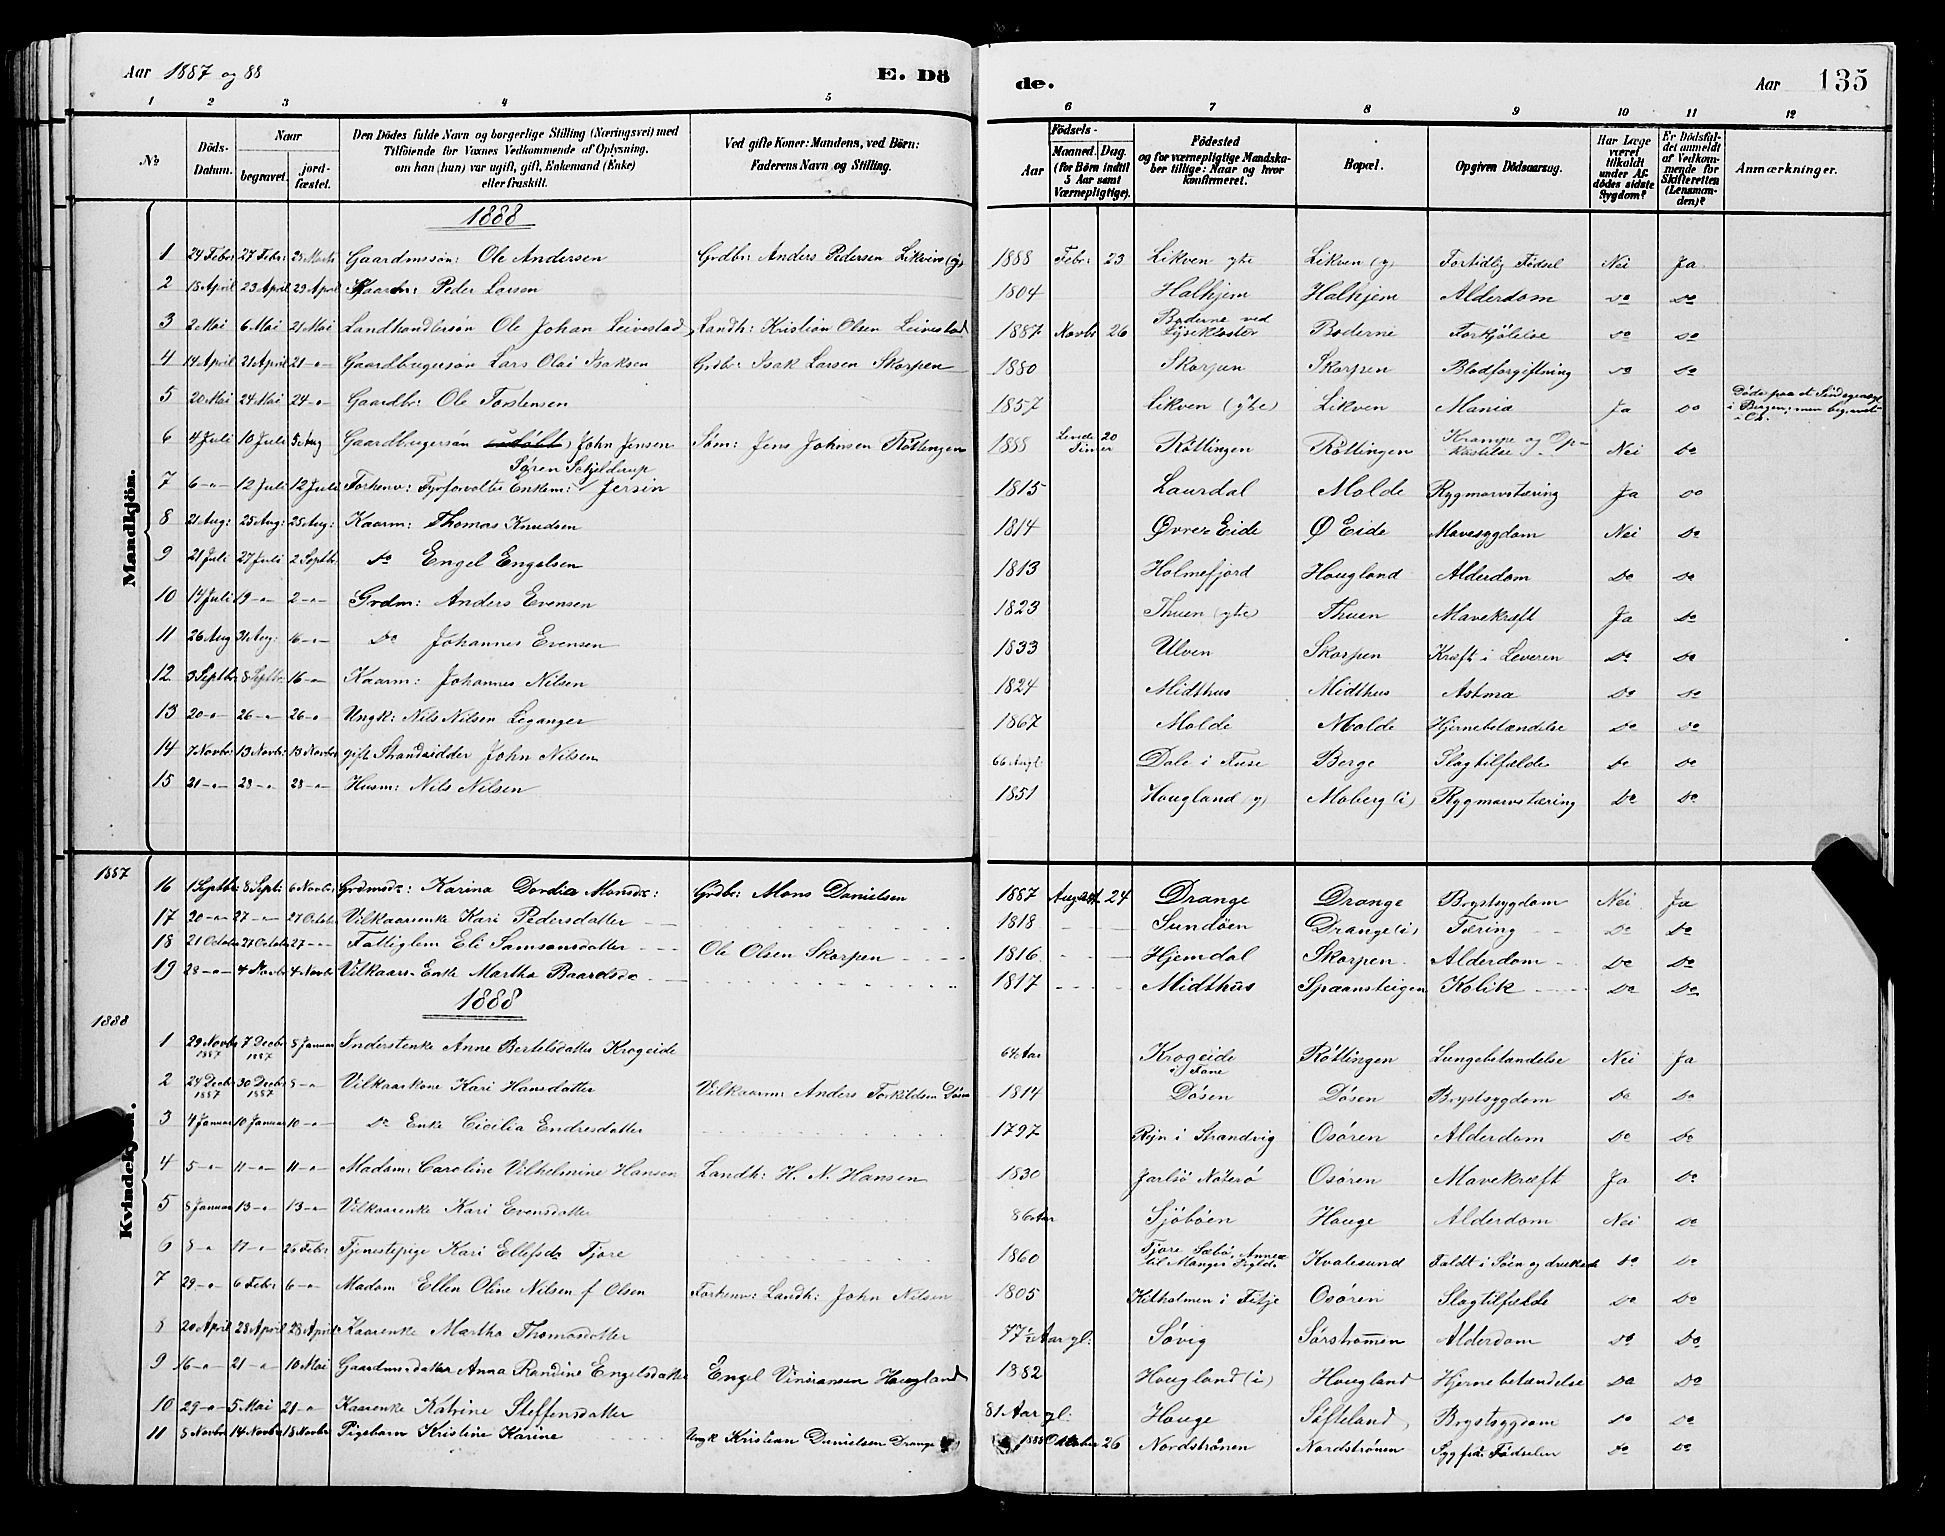 Aar 1887 og 88 E. Dö de. Aar 135
1 2 3 4 5 6 7 8 9 10 11 12
No. Döds-Datum. Naar begravet. jordfæstet. Den Dödes fulde Navn og borgerlige Stilling (Næringsvei) med Tilföiende for Voxnes Vedkommende af Oplysning, om han (hun) var ugift, gift, Enkemand (Enke) eller fraskilt. Ved gifte Koner: Mandens, ved Börn: Faderens Navn og Stilling. Födsels- Aar Maaned. Dag. (for Börn indtil 5 Aar samt Værnepligtige). Födested og for værnepligtige Mandskaber tillige: Naar og hvor konfirmeret. Bopæl. Opgiven Dödsaarsag. Har Læge været tilkaldt under Afdödes sidste Sygdom? Er Dödsfaldet anmeldt af Vedkommende for Skifteretten (Lensmanden)? Anmærkninger.
Mandkjön.
1888
1 24 Febr 27 Febr: 25 Marts Gaardmssøn: Ole Andersen Grdbr: Anders Pedersen Likven (y) 1888 Febr: 23 Likven yte Likven (y) Fortidlig Fødsel Nei Ja
2 18 April 23 April 29 April Kaarm: Peder Larsen 1804 Halhjem Halhjem Alderdom Do Do
3 2 Mai 6 Mai 21 Mai Landhandlersøn Ole Johan Leivestad Landh: Kristian Olsen Leivestad 1887 Novbr 26 Boderne ved Lysekloster Boderne Forkjølelse Do Do
4 14 April 21 April 21 -"- Gaardbrugersøn Lars Olai Isaksen Grdbr: Isak Larsen Skorpen 1880 Skorpen Skorpen Blodforgiftning Do Do
5 20 Mai 24 Mai 24 -"- Gaardbr: Ole Torstensen 1857 Likven (yte) Likven Mania Ja Do Døde paa et Sindsygeasyl i Bergen; men begravet i Os.
6 4 Juli 10 Juli 5 Aug Gaardbrugersøn John Jensen Søm: Jens Johnsen Røttingen 1888 20 Røttingen Røttingen Krampe og Opkastelse Nei Do
7 6 -"- 12 Juli 12 Juli Forhenv: Fyrforvalter Enkem: Søren Schjelderup Jersin 1815 Laurdal Molde Rygmarvstæring Ja Do
8 21 Aug: 25 Aug: 25 Aug: Kaarm: Thomas Knudsen 1814 Øvre Eide Ø Eide Mavesygdom Nei Do
9 21 Juli 27 Juli 2 Septbr Do Engel Engelsen 1813 Holmefjord Hougland Alderdom Do Do
10 14 Juli 19 -"- 2 -"- Grdm: Anders Evensen 1823 Thuen (yte) Thuen Mavekræft Ja Do
11 26 Aug 31 Aug: 16 -"- Do Johannes Evensen 1833 Ulven Skorpen Kræft i Leveren Do Do
12 3 Septbr 8 Septbr 16 -"- Kaarm: Johannes Nilsen 1824 Midthus Midthus Astma Do Do
13 20 -"- 26 -"- 26 -"- Ungk: Nils Nilsen Leganger 1867 Molde Molde Hjernebetændelse Do Do
14 7 Novbr: 13 Novbr: 13 Novbr gift Strandsidder John Nilsen 66 Aar gl. Dale i Fuse Berge Slagtilfælde Do Do
15 21 -"- 28 -"- 28 -"- Husm: Nils Nilsen 1851 Hougland (y) Moberg (i) Rygmarvstæring Do Do
Kvindekjön.
1887
16 1 Septbr 8 Septr 6 Novbr Grdmsdr: Karina Dordia Monsdr: Grdbr: Mons Danielsen 1887 August 24 Drange Drange Brystsygdom Nei Ja
17 20 -"- 27 -"- 27 October Vilkaarenke Kari Pedersdatter 1818 Sundøen Drange (i) Tæring Do Do
18 21 October 27 October 27 -"- Fattiglem Eli Samsonsdatter Ole Olsen Skorpen 1816 Hjemdal Skorpen Alderdom Do Do
19 28 -"- 4 Novbr 4 Novbr Vilkaars Enke Martha Baardsdr 1817 Midthus Spaansteigen Kolik Do Do
1888
1888
1 29 Novbr 1887 7 Decbr 1887 8 Januar Inderstenke Anne Bertelsdatter Krogeide 64 Aar Krogeide i Fane Røttingen Lungebetændelse Nei Ja
2 24 Decbr 1887 30 Decbr 1887 8 -"- Vilkaarkone Kari Hansdatter Vilkaarm: Anders Torkildsen Døsen 1814 Døsen Døsen Brystsygdom Do Do
3 4 Januar 10 Januar 10 -"- Do Enke Cicilia Endresdatter 1797 Røn i Strandvig Osøren Alderdom Do Do
4 5 -"- 11 -"- 11 -"- Madam: Caroline Vilhelmine Hansen Landh: H. N. Hansen 1830 Jarlsø Nøterø Osøren Mavekræft Ja Do
5 8 Januar 13 -"- 13 -"- Vilkaarenke Kari Evensdatter 86 Aar Sjøbøen Houge Alderdom Nei Do
6 8 -"- 11 -"- 26 Febr Tjenestepige Kari Ellefsdr Tjore 1860 Tjore Sæbø, Annex til Manger Kvalesund Faldt i Søen og druknede Do Do
7 29 -"- 6 Febr 6 -"- Madam Ellen Oline Nilsen f Olsen Forhenv: Landh: John Nilsen 1805 Kilholmen i Fitje Osøren Slagtilfælde Do Do
8 20 April 28 April 28 April Kaarenke Martha Thomasdatter 77½ Aar gl: Søvig Sørstrømmen Alderdom Do Do
9 16 -"- 21 -"- 10 Mai Gaardmsdatter Anna Randine Engelsdatter Engel Hougland 1882 Hougland (i) Hougland Hjernebetændelse Do Do
10 29 -"- 5 Mai 21 -"- Kaarenke Katrine Steffensdatter 81 Aar gl: Houge Søfteland Brystsygdom Do Do
11 8 Novbr 14 Novbr 18 Novbr Pigebarn Kristine Karine Ungk Kristian Danielsen Drange 1888 October 26 Nordstrønen Nordstrønen Syg fra Fødselen Do Do